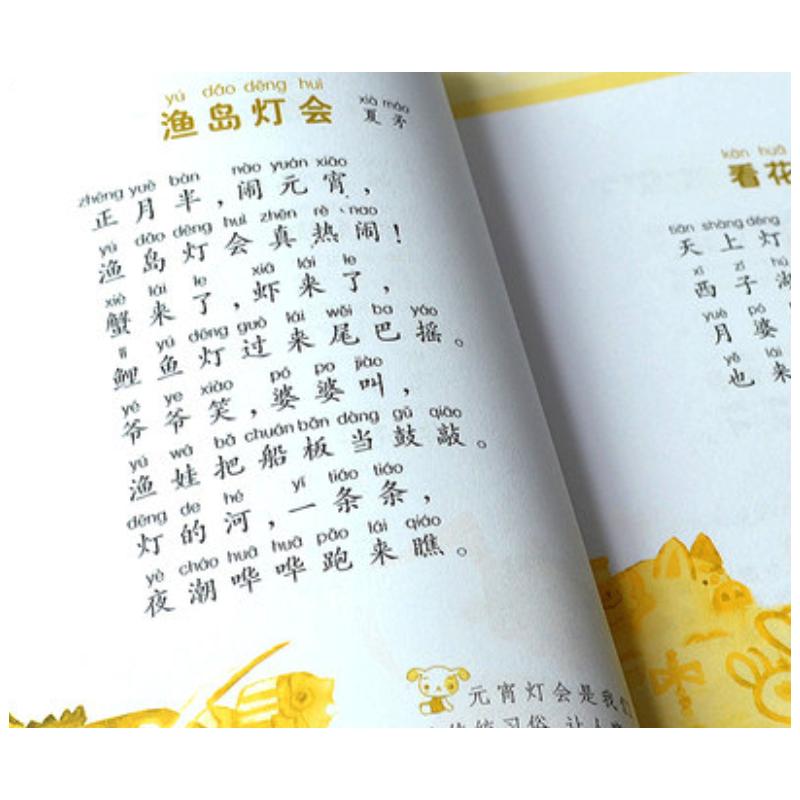 yú dǎo dēng huì
渔岛灯会
xià máo
夏矛
zhēng yuè bàn nào yuán xiāo
正月半，闹元宵，
yú dǎo dēng huì zhēn rè nao
渔岛灯会真热闹！
xiè lái le xiā lái le
蟹来了，虾来了，
lǐ yú dēng guò lái wěi ba yáo
鲤鱼灯过来尾巴摇。
yé ye xiào pó po jiào
爷爷笑，婆婆叫，
yú wá bǎ chuán bǎn dàng gǔ qiāo
渔娃把船板当鼓敲。
dēng de hé yì tiáo tiáo
灯的河，一条条，
yè cháo huā huā pǎo lái qiáo
夜潮哗哗跑来瞧。
元宵灯会是我们
习俗
kàn huā
看花
tiān shàng dēng
天上灯
xī zǐ hú
西子湖
yuè pó
月婆
yě lái
也来